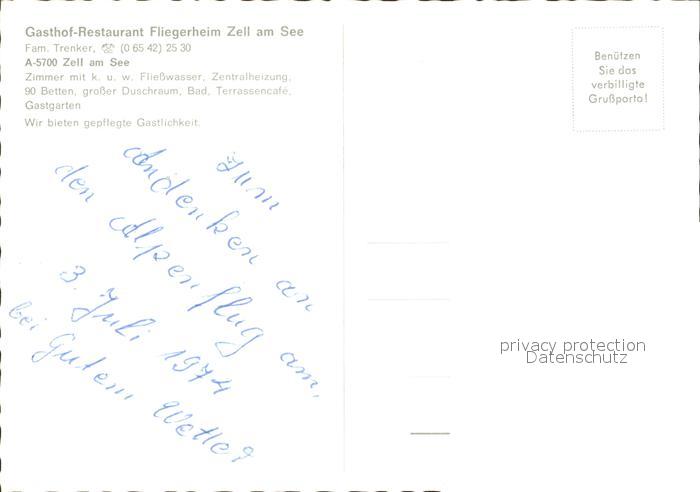 Gasthof-Restaurant Fliegerheim Zell am See
Fam. Trenker, ☏ (0 65 42) 25 30
A-5700 Zell am See
Zimmer mit k. u. w. Fließwasser, Zentralheizung,
90 Betten, großer Duschraum, Bad, Terrassencafé,
Gastgarten
Wir bieten gepflegte Gastlichkeit.
Benützen
Sie das
verbilligte
Grußporto!
Zum
Andenken an
den Alpenflug am,
3. Juli 1974
bei Gutem Wetter
privacy protection
Datenschutz